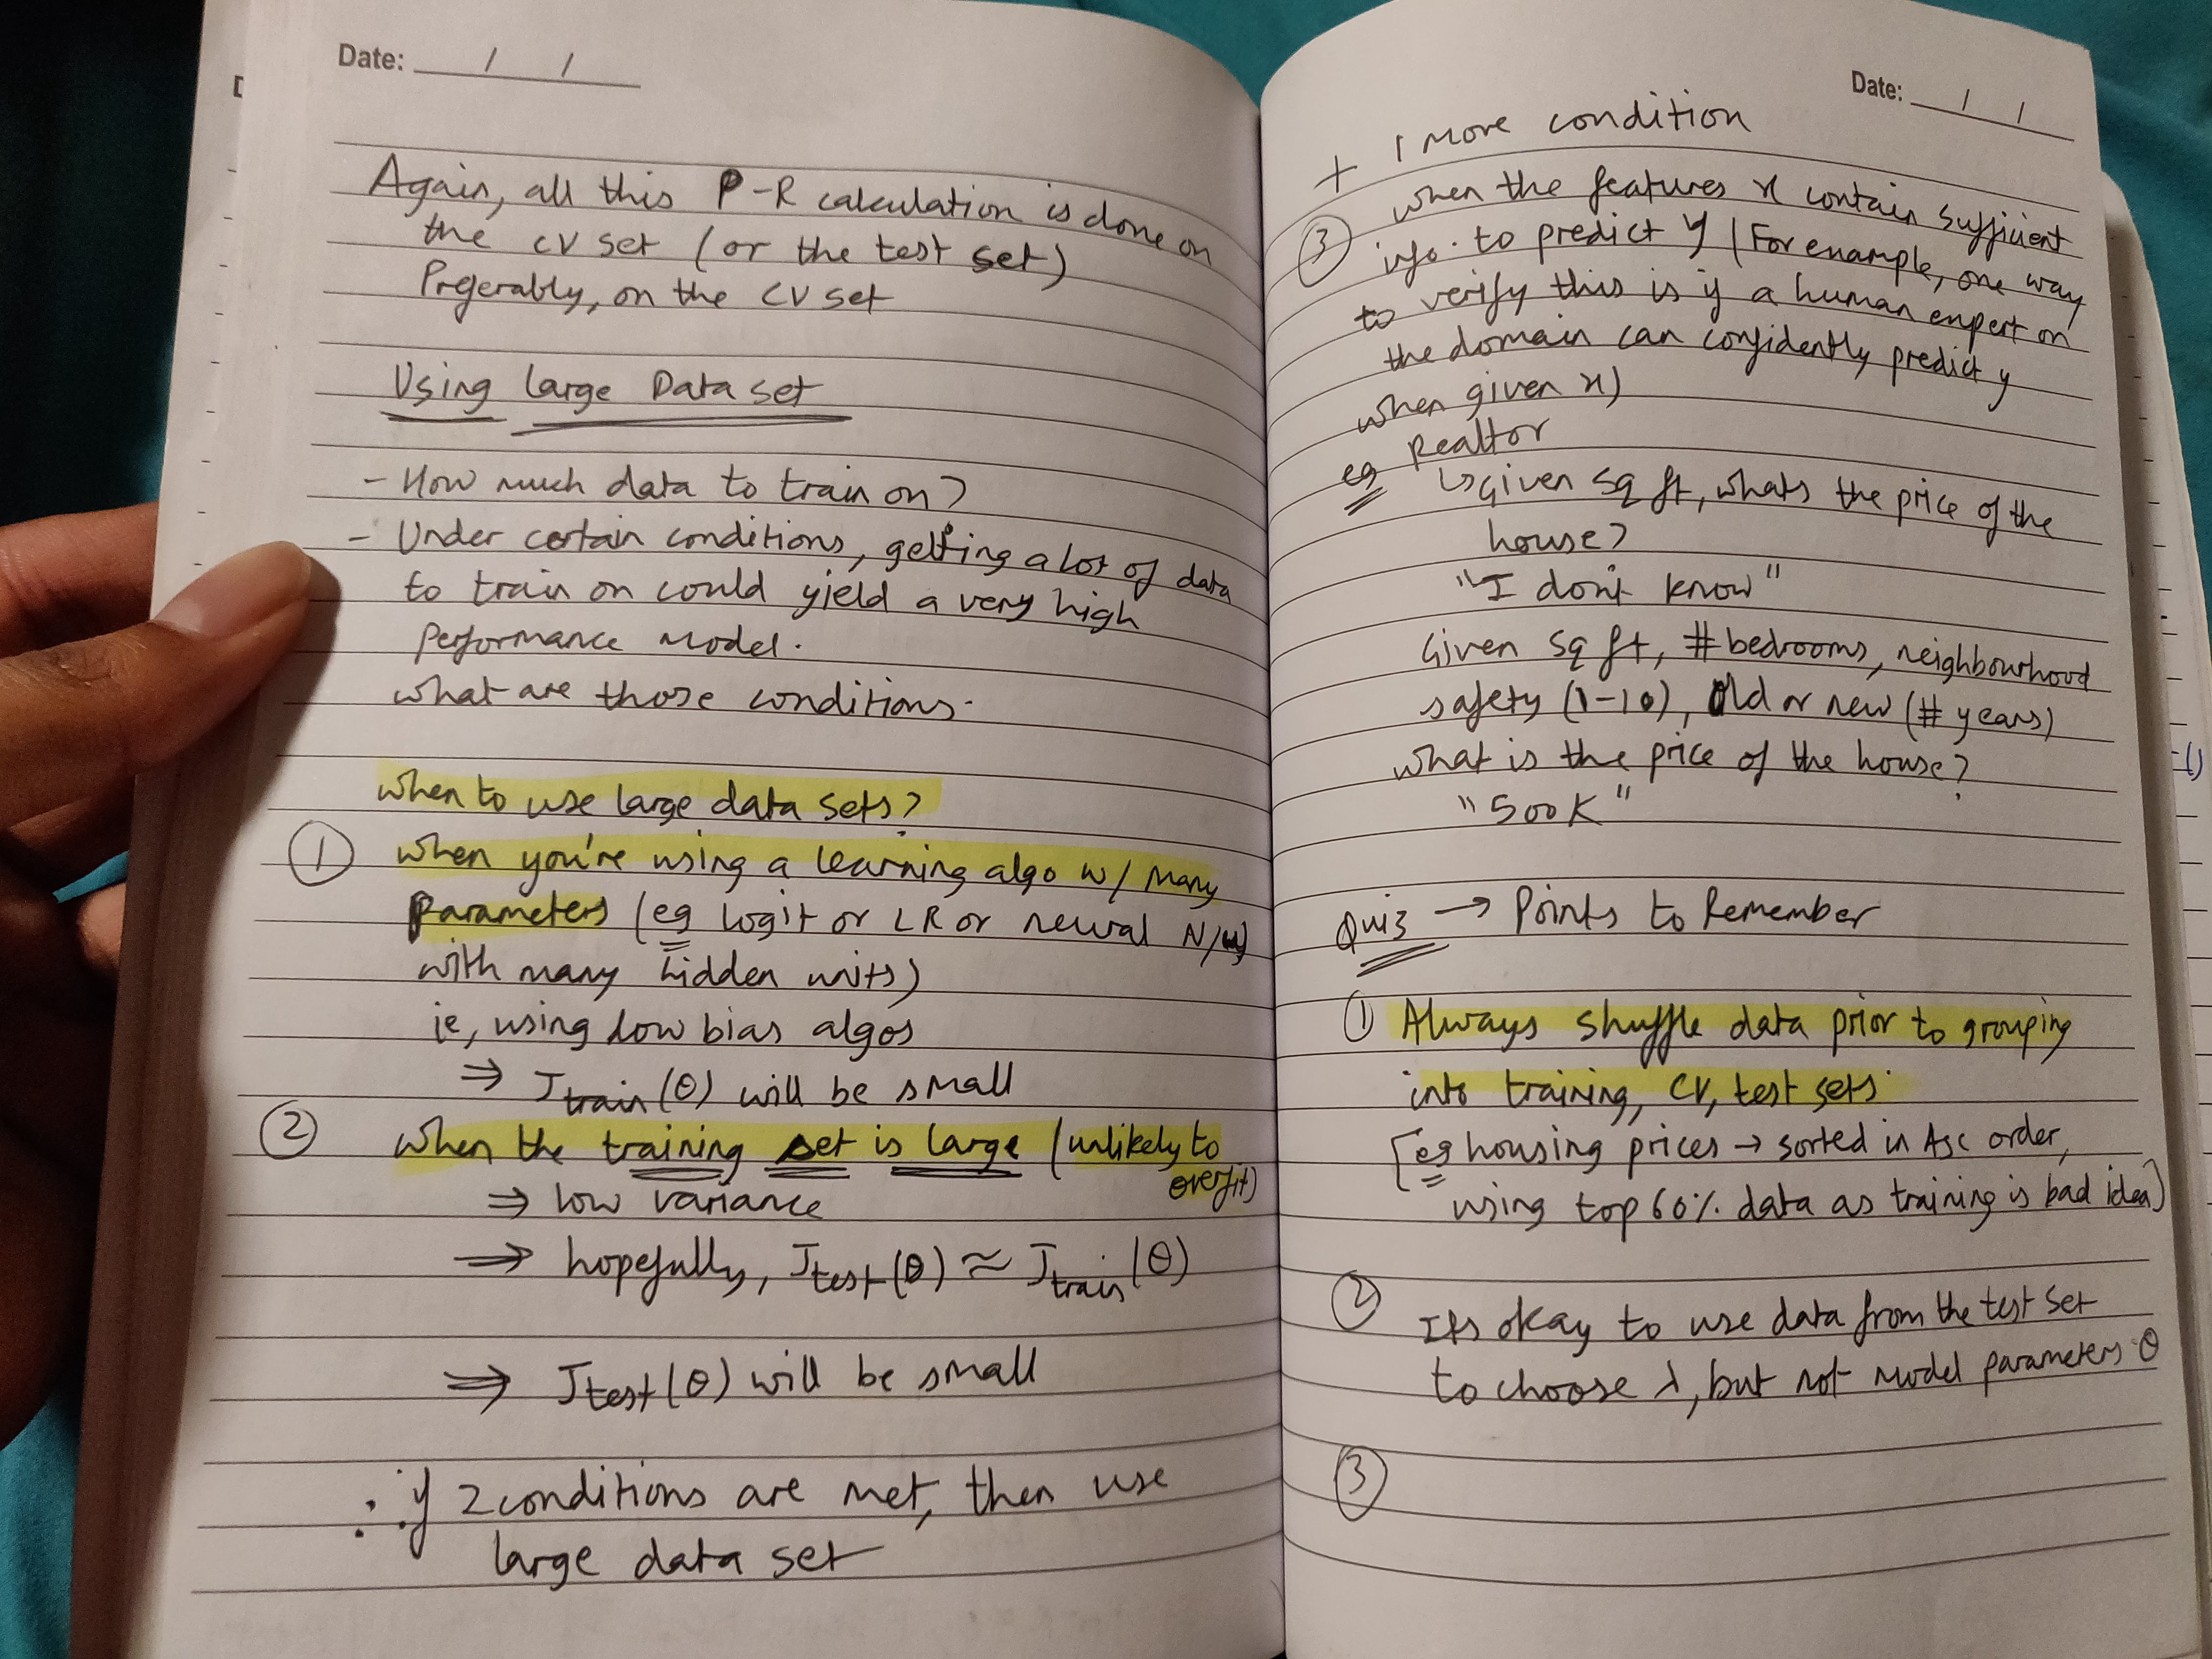 Date: / /
Again, all this P-R calculation is done on
the CV set (or the test set)
Preferably, on the CV set
Using Large Data set
- How much data to train on?
- Under certain conditions, getting a lot of data
to train on could yield a very high
performance model.
what are those conditions.
When to use large data sets?
① When you're using a learning algo w/ many
parameters (eg logit or LR or neural N/w)
with many hidden units)
ie, using low bias algos
⇒ Jtrain(θ) will be small
② When the training set is large (unlikely to
overfit)
⇒ low variance
⇒ hopefully, Jtest(θ) ≈ Jtrain(θ)
⇒ Jtest(θ) will be small
∴ if 2 conditions are met, then use
large data set
Date: / /
+ 1 more condition
③ When the features x contain sufficient
info. to predict y (For example, one way
to verify this is if a human expert on
the domain can confidently predict y
when given x)
eg Realtor
↳ Given sq ft, whats the price of the
house?
"I don't know"
Given sq ft, # bedrooms, neighbourhood
safety (1-10), Old or new (# years)
what is the price of the house?
"500K"
Quiz → Points to Remember
① Always shuffle data prior to grouping
into training, CV, test sets.
[eg housing prices → sorted in Asc order,
using top 60% data as training is bad idea]
② Its okay to use data from the test set
to choose λ, but not model parameters θ
③